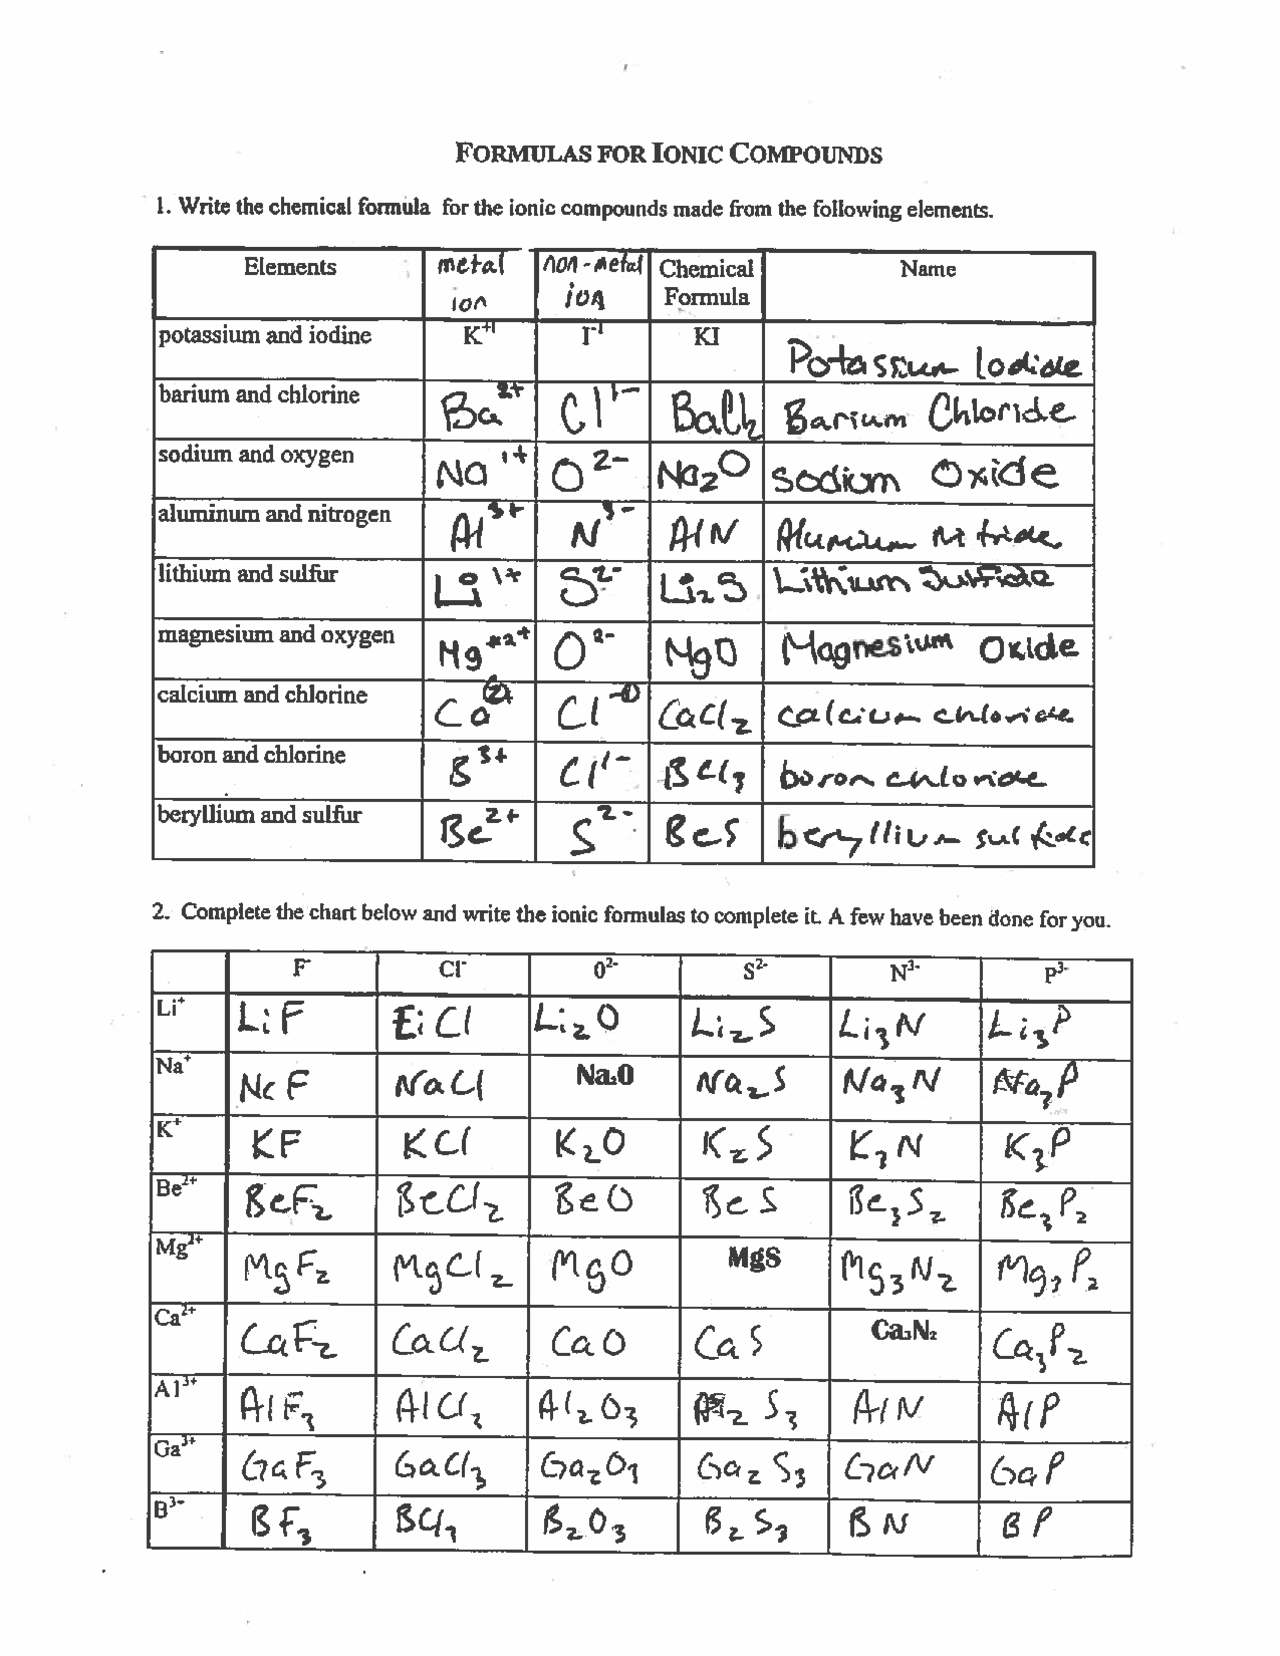 FORMULAS FOR IONIC COMPOUNDS
1. Write the chemical formula for the ionic compounds made from the following elements.
Elements metal ion non-metal ion Chemical Formula Name
potassium and iodine K⁺¹ I⁻¹ KI Potassium Iodide
barium and chlorine Ba²⁺ Cl¹⁻ BaCl₂ Barium Chloride
sodium and oxygen Na¹⁺ O²⁻ Na₂O sodium Oxide
aluminum and nitrogen Al³⁺ N³⁻ AlN Aluminum nitride
lithium and sulfur Li¹⁺ S²⁻ Li₂S Lithium Sulfide
magnesium and oxygen Mg²⁺ O²⁻ MgO Magnesium Oxide
calcium and chlorine Ca Cl CaCl₂ calcium chloride
boron and chlorine B³⁺ Cl¹⁻ BCl₃ boron chloride
beryllium and sulfur Be²⁺ S²⁻ BeS beryllium sulfide
2. Complete the chart below and write the ionic formulas to complete it. A few have been done for you.
F⁻ Cl⁻ O²⁻ S²⁻ N³⁻ P³⁻
Li⁺ LiF LiCl Li₂O Li₂S Li₃N Li₃P
Na⁺ NaF NaCl Na₂O Na₂S Na₃N Na₃P
K⁺ KF KCl K₂O K₂S K₃N K₃P
Be²⁺ BeF₂ BeCl₂ BeO BeS Be₃S₂ Be₃P₂
Mg²⁺ MgF₂ MgCl₂ MgO MgS Mg₃N₂ Mg₃P₂
Ca²⁺ CaF₂ CaCl₂ CaO CaS Ca₃N₂ Ca₃P₂
Al³⁺ AlF₃ AlCl₃ Al₂O₃ Al₂S₃ AlN AlP
Ga³⁺ GaF₃ GaCl₃ Ga₂O₃ Ga₂S₃ GaN GaP
B³⁻ BF₃ BCl₃ B₂O₃ B₂S₃ BN BP